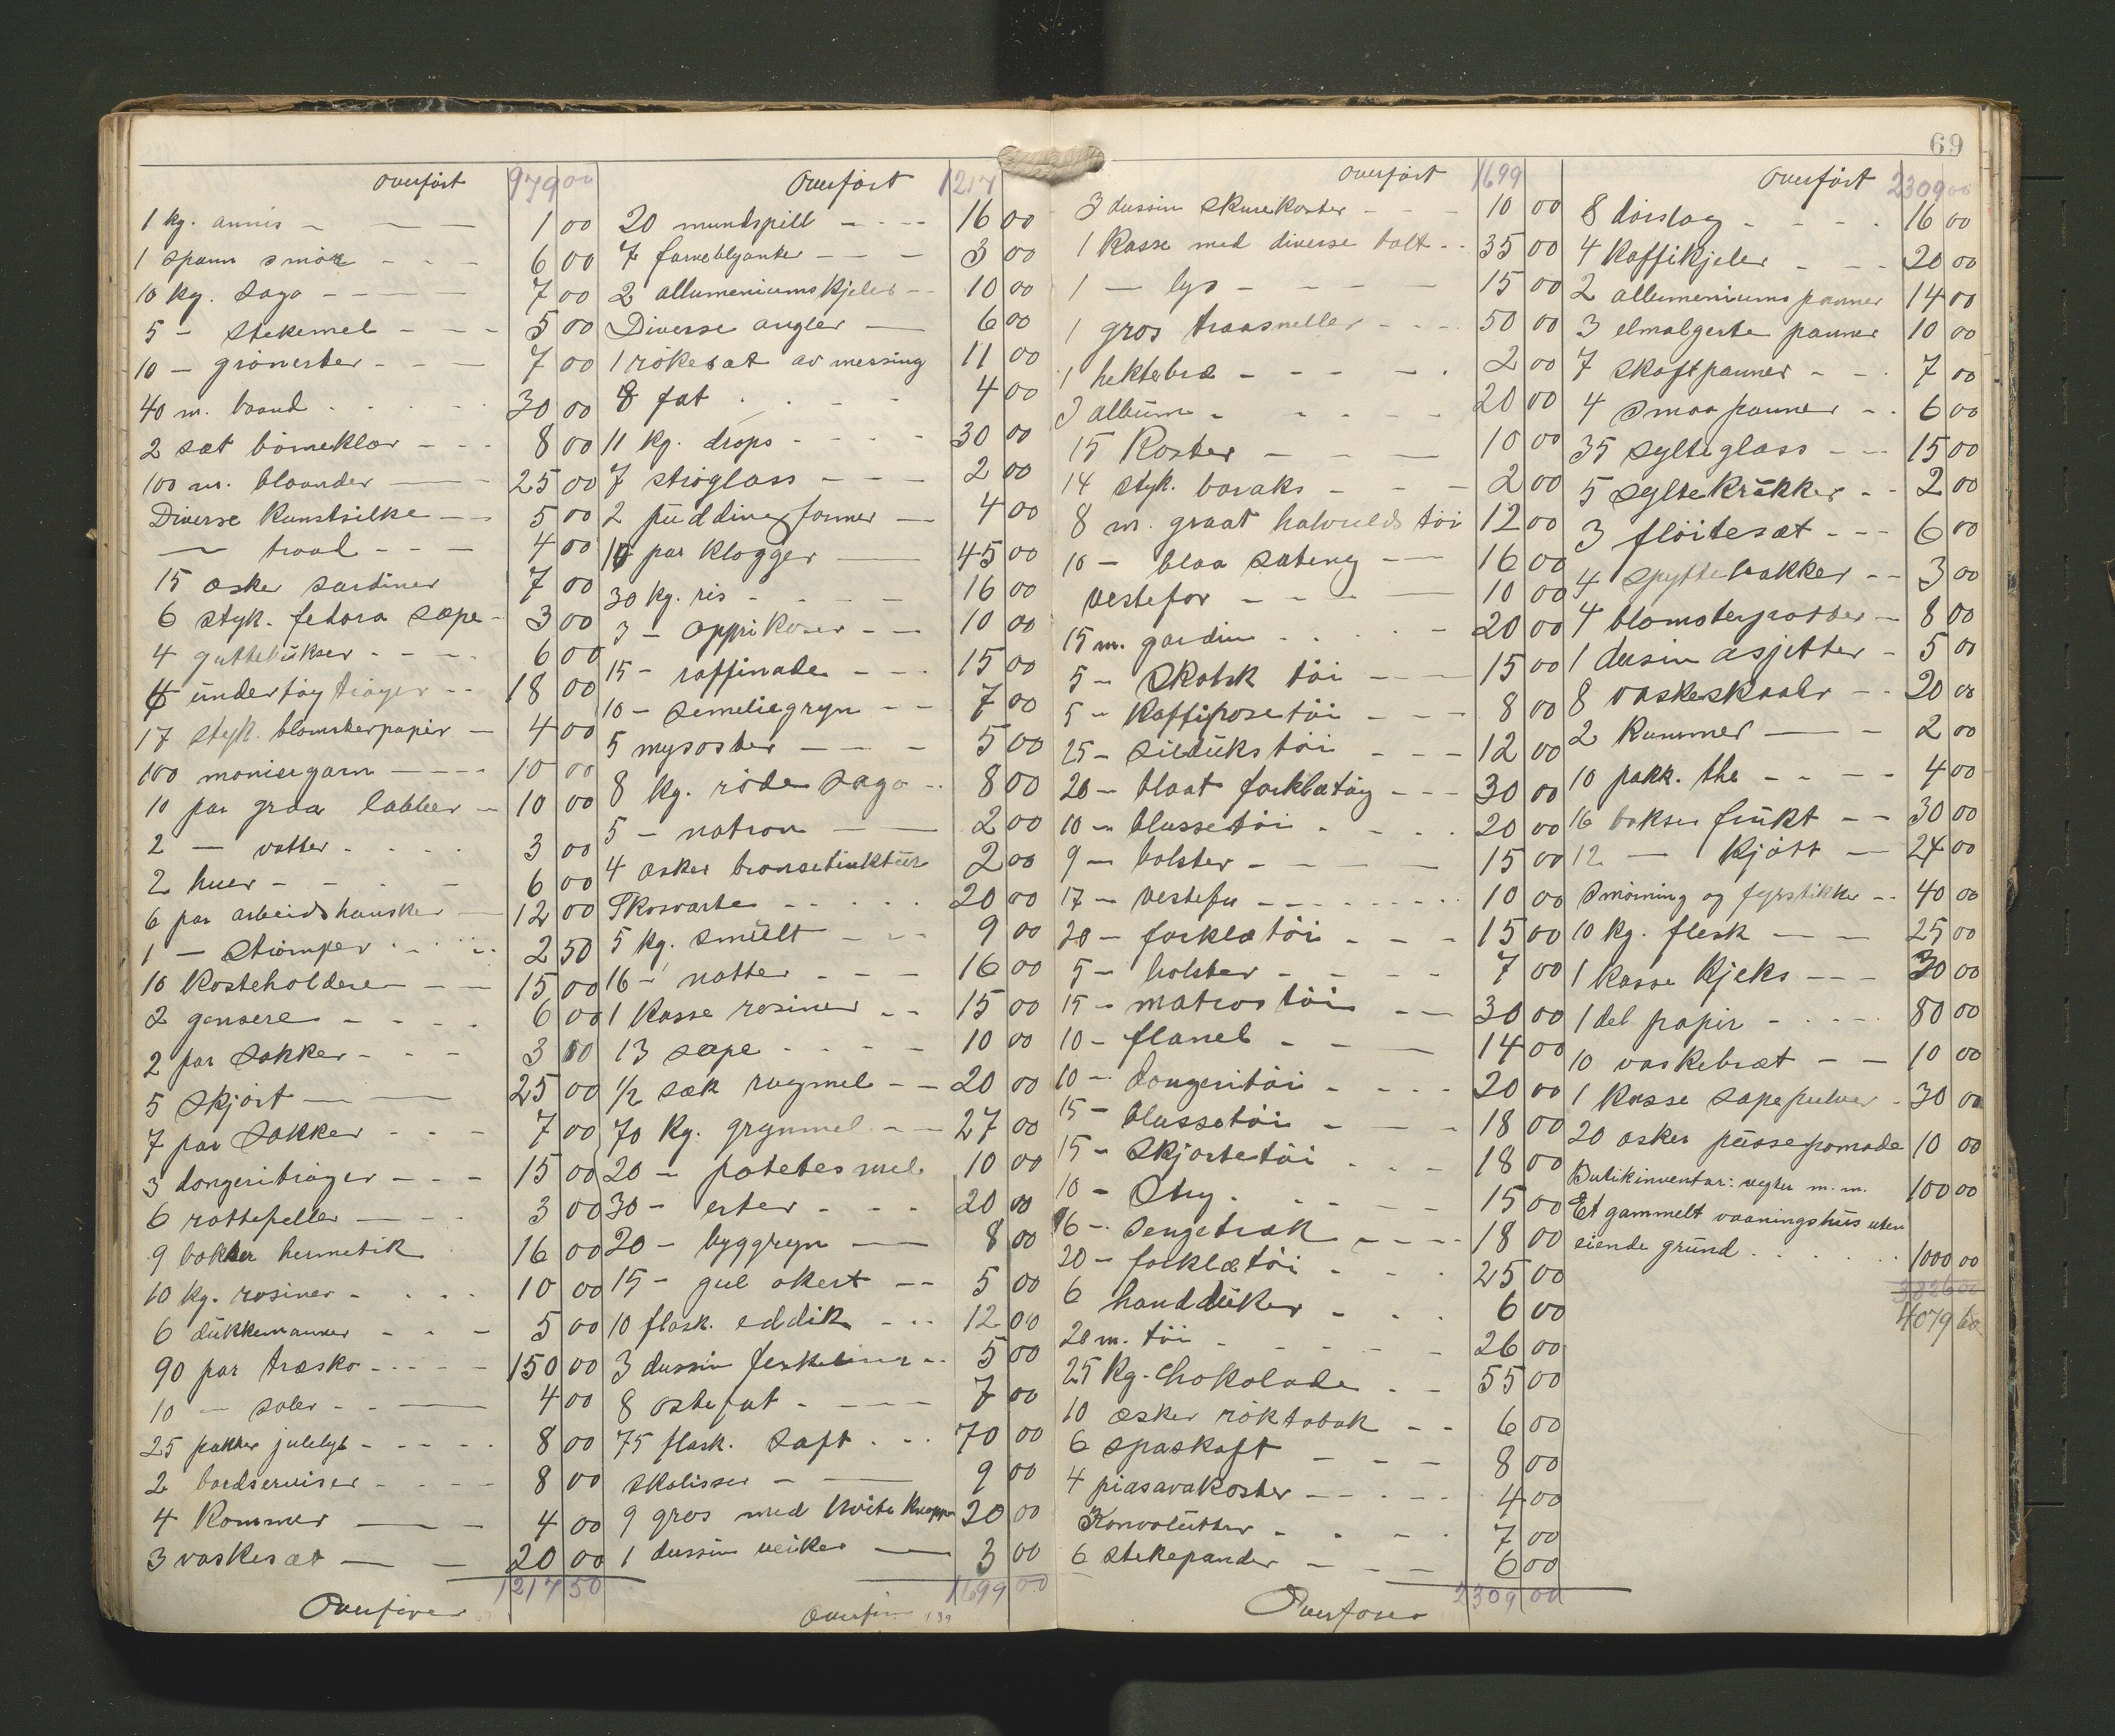 69
Overført 979 00
1 kg. annis 1 00
1 spann smör 6 00
10 kg. sago 7 00
5 - stekemel 5 00
10 - grönerter 7 00
40 m. baand 30 00
2 sæt börneklær 8 00
100 m. blaander 25 00
Diverse Kunstsilke 5 00
— traad 4 00
15 æsker sardiner 7 00
6 styk. fedora sæpe 3 00
4 guttebükser 6 00
4 ündertøy trøyer 18 00
17 styk. blomsterpapir 4 00
100 moniegarn 10 00
10 par graa labber 10 00
2 — votter 3 00
2 huer 6 00
6 par arbeidshansker 12 00
1 — Strömper 2 50
10 Kosteholdere 15 00
2 gensere 6 00
2 par Sokker 3 00
5 Skjört 25 00
7 par Sokker 7 00
3 dongeritröyer 15 00
6 rottefeller 3 00
9 bokser hermetik 16 00
10 kg. rosiner 10 00
6 dükkevanner 5 00
90 par træsko 150 00
10 — soler 4 00
25 pakker julelys 8 00
2 bordserviser 8 00
4 Kommer 4 00
3 vaskesæt 20 00
1217 50
Overføres
Overført 1217
20 mundspill 16 00
7 farveblyanter 3 00
2 allumeniumskjeler 10 00
Diverse angler 6 00
1 rökesæt av messing 11 00
8 fat 4 00
11 kg. drops 30 00
7 ströglass 2 00
2 püddingformer 4 00
10 par Klogger 45 00
30 kg. ris 16 00
3 - apprikoser 10 00
15 - raffinade 15 00
10 - semeliegryn 7 00
5 mysoster 5 00
8 kg. röde sago 8 00
5 - natron 2 00
4 æsker bronsetinktür 2 00
Skosværte 20 00
5 kg. smült 9 00
16 - nøtter 16 00
1 Kasse rosiner 15 00
13 sæpe 10 00
1/2 sæk rugmel 20 00
70 kg. grynmel 27 00
20 - potetesmel 10 00
30 - erter 20 00
20 - byggryn 8 00
15 - gul okert 5 00
10 flask. eddik 12 00
3 dussin 5 00
8 ostefat 7 00
75 flask. Saft 70 00
skolisser 9 00
9 gros med hvite knapper 20 00
1 dussin veiker 3 00
1699 00
Overføres
Overført 1699
3 dussin skurekoster 10 00
1 Kasse med diverse bolt 35 00
1 — lys 15 00
1 gros traasneller 50 00
1 hektebræ 2 00
3 albüm 20 00
15 Koster 10 00
14 styk. boraks 2 00
8 m. graat halvulds töi 12 00
10 - blaa sateng 16 00
vestefor 10 00
15 m. gardin 20 00
5 - Skotsk töi 15 00
5 - Kaffiposetöi 8 00
25 - sildükstöi 12 00
20 - blaat forklætöy 30 00
10 - blussetöi 20 00
9 - bolster 15 00
17 - vestefor 10 00
20 - forklætöi 15 00
5 - bolster 7 00
15 - matrostöi 30 00
10 - flanel 14 00
10 - dongeritöi 20 00
15 - blussetöi 18 00
15 - Skjortetöi 18 00
10 - Stry 15 00
16 - Sengetræk 18 00
20 - forklætöi 25 00
6 handdüker 6 00
20 m. töi 26 00
25 Kg. Chokolade 55 00
10 æsker röktobak 6 00
6 spaskaft 8 00
4 piasavakoster 4 00
Konvolütter 7 00
6 stekepander 6 00
2309 00
Overføres
Overført 2309 00
8 dörslag 16 00
4 Kaffikjeler 20 00
2 allumeniums panner 14 00
3 elmalgerte panner 10 00
7 skaftpanner 7 00
4 smaa panner 6 00
35 sylteglass 15 00
5 syltekrükker 2 00
3 flöitesæt 6 00
4 spyttebakker 3 00
4 blomsterpotter 8 00
1 dusin asjetter 5 00
8 vaskeskaaler 20 00
2 Kummer 2 00
10 pakk. the 4 00
16 bokser frükt 30 00
12 — kjött 24 00
Smörning og fyrstikker 40 00
10 kg. flesk 25 00
1 Kasse Kjeks 30 00
1 del papir 80 00
10 vaskebræt 10 00
1 Kasse Sæpepulver 30 00
20 æsker püssepomade 10 00
Butikinventar: vegter m. m. 100 00
Et gammelt vaaningshüs uten
eiende gründ 1000 00
3826 00
4079 60